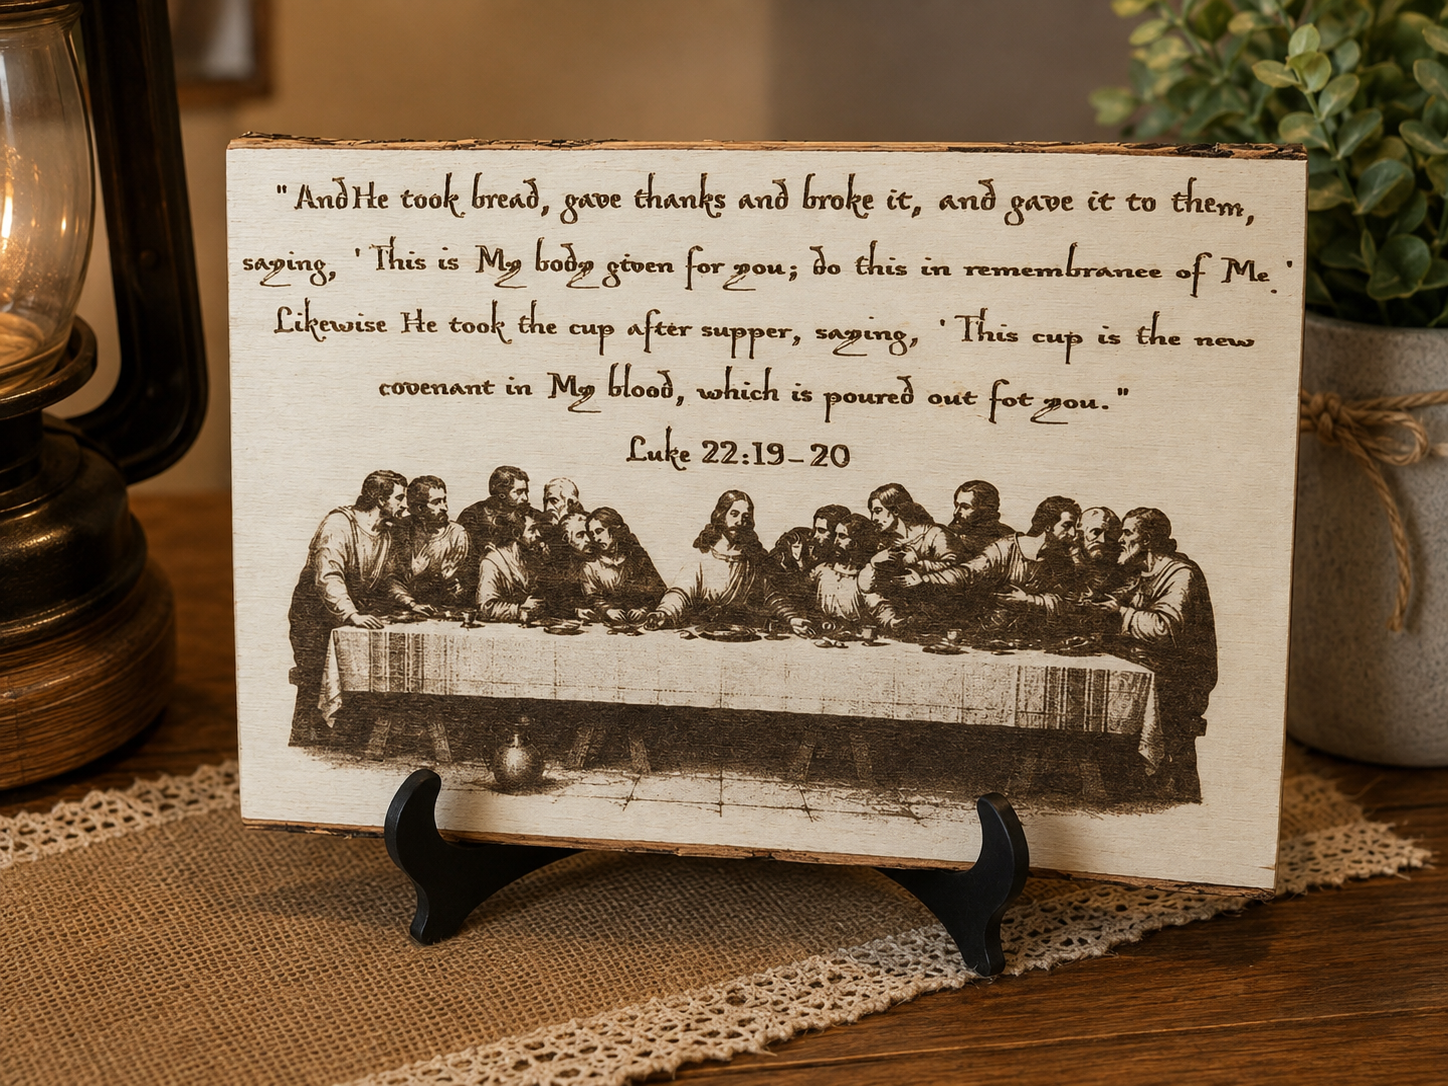 "And He took bread, gave thanks and broke it, and gave it to them,
saying, 'This is My body given for you; do this in remembrance of Me.'
Likewise He took the cup after supper, saying, 'This cup is the new
covenant in My blood, which is poured out fot you."
Luke 22:19-20